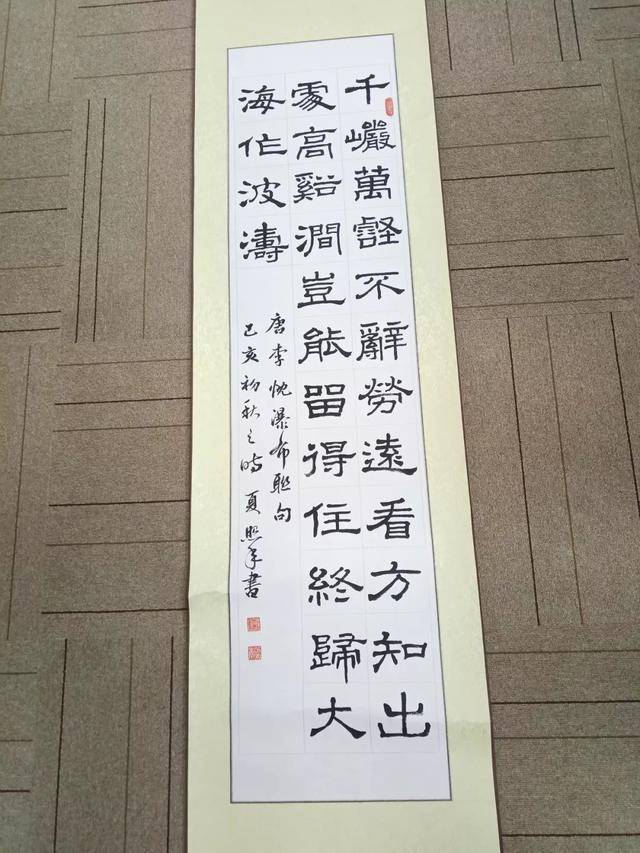 千巖萬壑不辭勞遠看方知出
處高谿澗豈能留得住終歸大
海作波濤
唐李忱瀑布聯句
己亥初秋之時夏照年書